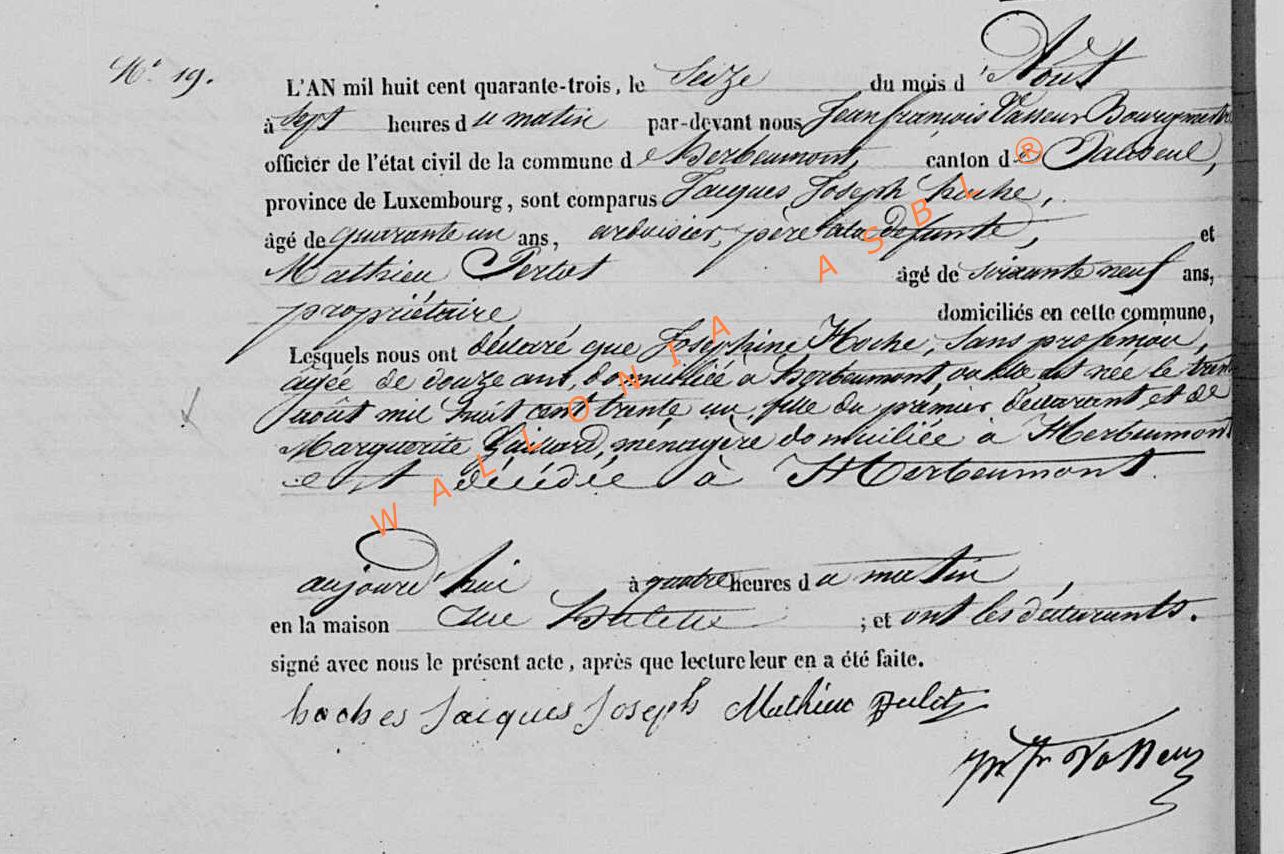 N.° 19.
L'AN mil huit cent quarante-trois, le Seize du mois d'Aout
à Sept heures du matin par-devant nous Jean françois Vasseur Bourgmestre
officier de l'état civil de la commune de Herbeumont, canton de Paliseul,
province de Luxembourg, sont comparus Jacques Joseph hoche,
âgé de quarante un ans, ardoisier, père de la défunte, et
Mathieu âgé de soixante neuf ans,
propriétaire domiciliés en cette commune,
Lesquels nous ont déclaré que Joséphine Hoche, sans profession,
agée de douze ans, domiciliée à Herbeumont, où elle est née le trente
août mil huit cent trente un, fille du premier déclarant et de
Marguerite Gaillard, ménagère domiciliée à Herbeumont
est décédée à Herbeumont
aujourd'hui à quatre heures du matin
en la maison rue ; et ont les déclarants.
signé avec nous le présent acte, après que lecture leur en a été faite.
hoches Jacques Joseph Mathieu
Vasseur
WALLONIA ASBL ®